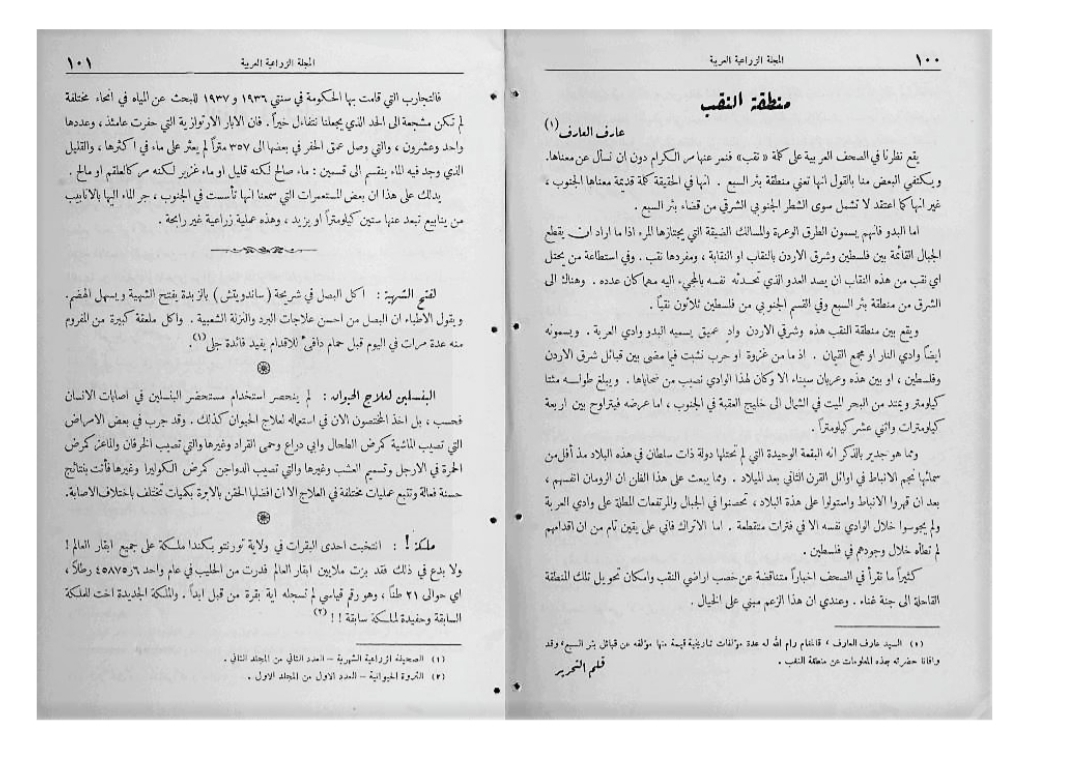 ١٠٠
المجلة الزراعية العربية
منطقة النقب
عارف العارف (١)
يقع نظرنا في الصحف العربية على كلمة « نقب » فنمر عنها مر الكرام دون ان نسأل عن معناها.
ويكتفي البعض منا بالقول انها تعني منطقة بئر السبع . انها في الحقيقة كلمة قديمة معناها الجنوب ،
غير انها كما اعتقد لا تشمل سوى الشطر الجنوبي الشرقي من قضاء بئر السبع .
اما البدو فانهم يسمون الطرق الوعرة والمسالك الضيقة التي يجتازها المرء اذا ما اراد ان يقطع
الجبال القائمة بين فلسطين وشرق الاردن بالنقاب او النقابة ، ومفردها نقب . وفي استطاعة من يحتل
اي نقب من هذه النقاب ان يصد العدو الذي تحدثه نفسه بالمجيء اليه مهما كان عدده . وهناك الى
الشرق من منطقة بئر السبع وفي القسم الجنوبي من فلسطين ثلاثون نقباً .
ويقع بين منطقة النقب هذه وشرقي الاردن وادٍ عميق يسميه البدو وادي العربة . ويسمونه
ايضاً وادي النار او مجمع القيمان . اذ ما من غزوة او حرب نشبت فيما مضى بين قبائل شرق الاردن
وفلسطين ، او بين هذه وعربان سيناء الا وكان لهذا الوادي نصيب من ضحاياها . ويبلغ طوله مئتا
كيلومتر ويمتد من البحر الميت في الشمال الى خليج العقبة في الجنوب ، اما عرضه فيتراوح بين اربعة
كيلومترات واثني عشر كيلومتراً .
ومما هو جدير بالذكر انه البقعة الوحيدة التي لم تحتلها دولة ذات سلطان في هذه البلاد مذ أفل من
سمائها نجم الانباط في اوائل القرن الثاني بعد الميلاد . ومما يبعث على هذا الظن ان الرومان انفسهم ،
بعد ان قهروا الانباط واستولوا على هذة البلاد ، تحصنوا في الجبال والمرتفعات المطلة على وادي العربة
ولم يجوسوا خلال الوادي نفسه الا في فترات متقطعة . اما الاتراك فاني على يقين تام من ان اقدامهم
لم تطأه خلال وجودهم في فلسطين .
كثيراً ما تقرأ في الصحف اخباراً متناقضة عن خصب اراضي النقب وامكان تحويل تلك المنطقة
القاحلة الى جنة غناء . وعندي ان هذا الزعم مبني على الخيال .
السيد عارف العارف ، قائمقام رام الله له عدة مؤلفات تاريخية قيمة منها مؤلفه عن قبائل بئر السبع، وقد
وافانا حضرته بهذه المعلومات عن منطقة النقب .
قلم التحرير
١٠١
المجلة الزراعية العربية
فالتجارب التي قامت بها الحكومة في سنتي ١٩٣٦ و ١٩٣٧ للبحث عن المياه في انحاء مختلفة
لم تكن مشجعة الى الحد الذي يجعلنا نتفاءل خيراً . فان الابار الارتوازية التي حفرت عامئذ ، وعددها
واحد وعشرون ، والتي وصل عمق الحفر في بعضها الى ٣٥٧ متراً لم يعثر على ماء في اكثرها ، والقليل
الذي وجد فيه الماء ينقسم الى قسمين : ماء صالح لكنه قليل او ماء غزير لكنه مر كالعلقم او مالح .
يدلك على هذا ان بعض المستعمرات التي سمعنا انها تأسست في الجنوب ، جر الماء اليها بالانابيب
من ينابيع تبعد عنها ستين كيلومتراً او يزيد ، وهذه عملية زراعية غير رابحة .
لفتح الشهية : اكل البصل في شريحة ( ساندويتش ) بالزبدة يفتح الشهية ويسهل الهضم.
ويقول الأطباء ان البصل من احسن علاجات البرد والنزلة الشعبية . واكل ملعقة كبيرة من المفروم
منه عدة مرات في اليوم قبل حمام دافئ للاقدام يفيد فائدة جلى (١).
البنسلين لعلاج الحيوان : لم ينحصر استخدام مستحضر البنسلين في اصابات الانسان
فحسب ، بل اخذ المختصون الان في استعماله لعلاج الحيوان كذلك . وقد جرب في بعض الامراض
التي تصيب الماشية كمرض الطحال وابي دراع وحمى القراد وغيرها والتي تصيب الخرفان والماعز كمرض
الحمرة في الارجل وتسميم العشب وغيرها والتي تصيب الدواجن كمرض الكوليرا وغيرها فأتت بنتائج
حسنة فعالة وتتبع عمليات مختلفة في العلاج الا ان افضلها الحقن بالابرة بكميات تختلف باختلاف الاصابة.
ملكة ! : انتخبت احدى البقرات في ولاية تورنتو بكندا ملكة على جميع ابقار العالم !
ولا بدع في ذلك فقد بزت ملايين ابقار العالم فدرت من الحليب في عام واحد ٤٥٨٧٥٫٦ رطلاً ،
اي حوالى ٢١ طناً ، وهو رقم قياسي لم تسجله اية بقرة من قبل ابداً . والملكة الجديدة اخت للملكة
السابقة وحفيدة لملكة سابقة ! ! (٢)
(١) الصحيفة الزراعية الشهرية – العدد الثاني من المجلد الثاني .
(٢) الثروة الحيوانية – العدد الاول من المجلد الاول .